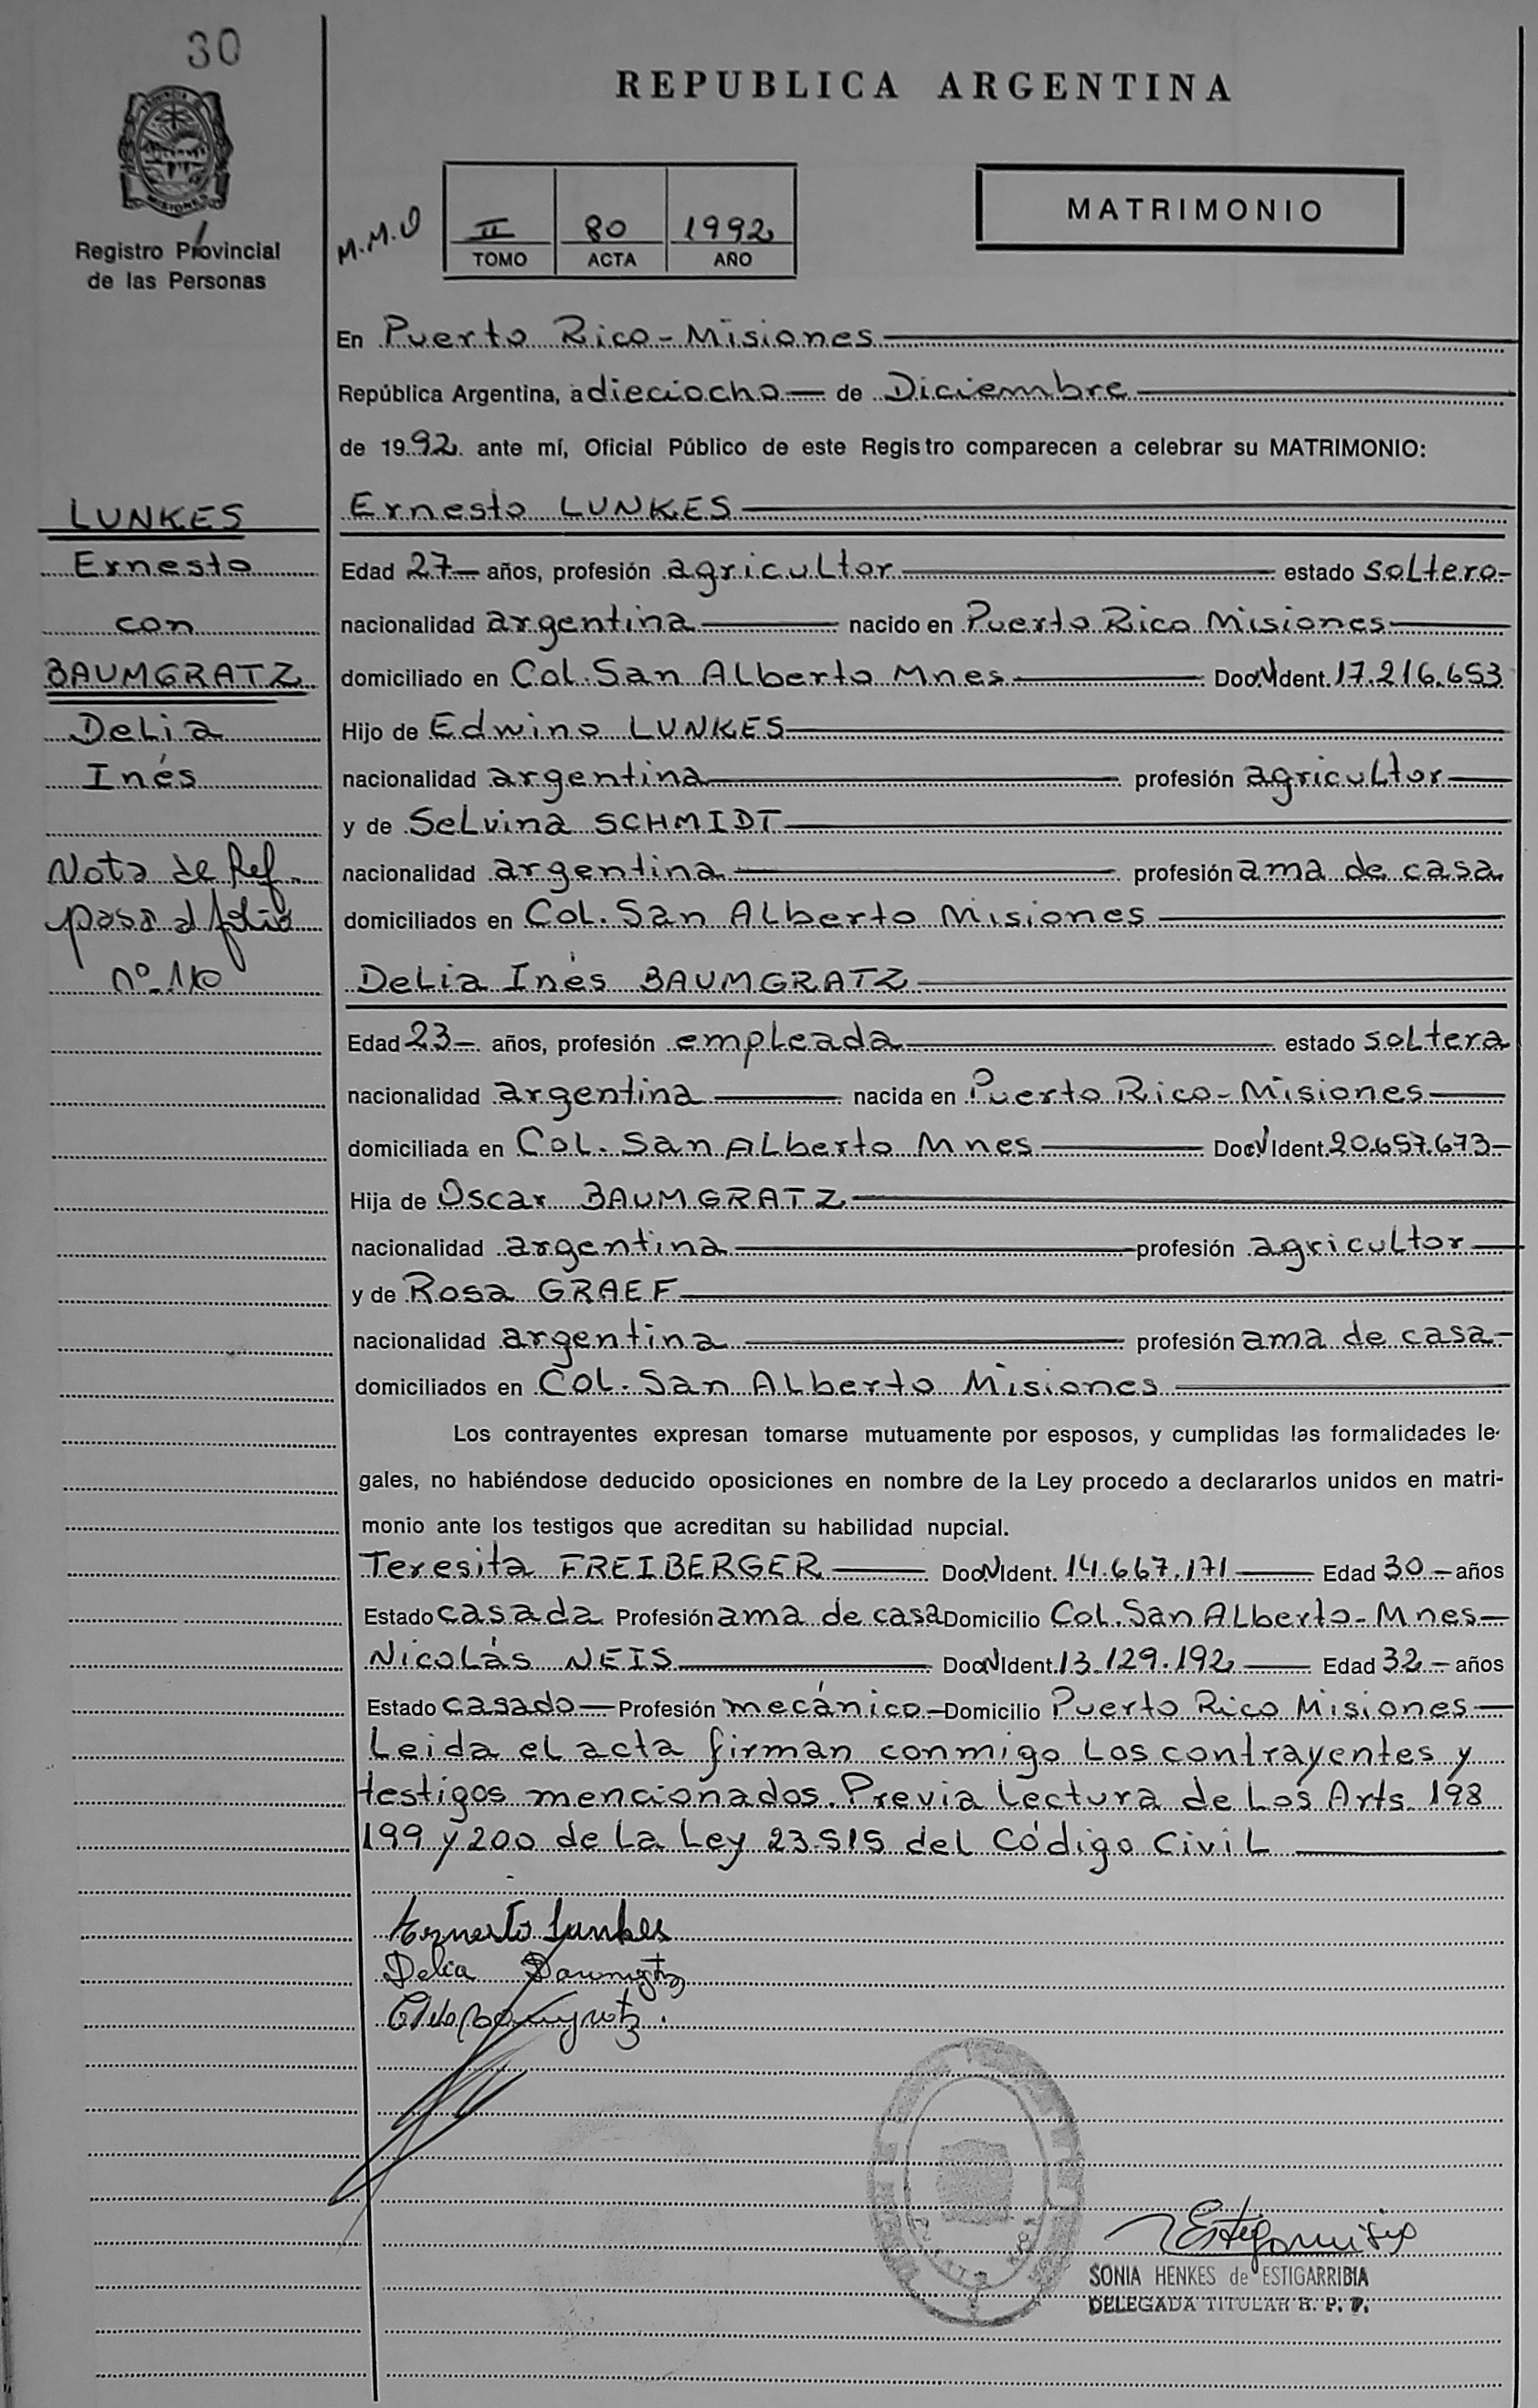 30
REPUBLICA ARGENTINA
PROVINCIA
MISIONES
Registro Provincial
de las Personas
M.M.O
II 80 1992
TOMO ACTA AÑO
MATRIMONIO
En Puerto Rico - Misiones
República Argentina, a dieciocho de Diciembre
de 1992 ante mí, Oficial Público de este Registro comparecen a celebrar su MATRIMONIO:
LUNKES
Ernesto
con
BAUMGRATZ
Delia
Inés
Nota de Ref.
pasa al folio
nº 110
Ernesto LUNKES
Edad 27 años, profesión agricultor estado soltero
nacionalidad argentina nacido en Puerto Rico Misiones
domiciliado en Col. San Alberto Mnes Doc. N Ident. 17.216.653
Hijo de Edwino LUNKES
nacionalidad argentina profesión agricultor
y de Selvina SCHMIDT
nacionalidad argentina profesión ama de casa
domiciliados en Col. San Alberto Misiones
Delia Inés BAUMGRATZ
Edad 23 años, profesión empleada estado soltera
nacionalidad argentina nacida en Puerto Rico - Misiones
domiciliada en Col. San Alberto Mnes Doc. N Ident. 20.657.673
Hija de Oscar BAUMGRATZ
nacionalidad argentina profesión agricultor
y de Rosa GRAEF
nacionalidad argentina profesión ama de casa
domiciliados en Col. San Alberto Misiones
Los contrayentes expresan tomarse mutuamente por esposos, y cumplidas las formalidades le-
gales, no habiéndose deducido oposiciones en nombre de la Ley procedo a declararlos unidos en matri-
monio ante los testigos que acreditan su habilidad nupcial.
Teresita FREIBERGER Doc. N Ident. 14.667.171 Edad 30 años
Estado casada Profesión ama de casa Domicilio Col. San Alberto - Mnes
Nicolás NEIS Doc. N Ident. 13.129.192 Edad 32 años
Estado casado Profesión mecánico Domicilio Puerto Rico Misiones
Leida el acta firman conmigo los contrayentes y
testigos mencionados. Previa lectura de los Arts. 198
199 y 200 de la Ley 23.515 del Código Civil
Ernesto Lunkes
Delia Baumgratz
SONIA HENKES de ESTIGARRIBIA
DELEGADA TITULAR R. P. P.